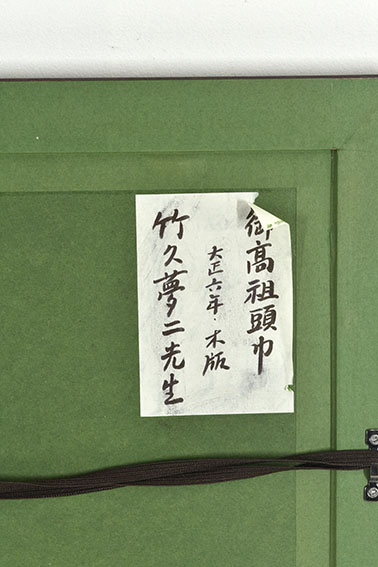 御高祖頭巾
大正六年・木版
竹久夢二先生